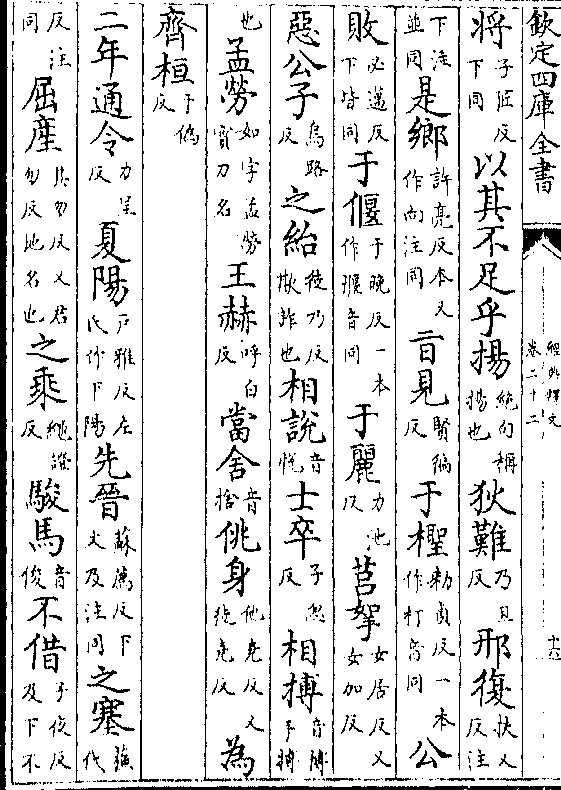 欽定四庫全書
經典釋文
卷二十二
將子匠反下同以其不足乎揚絶句稱揚也狄難乃旦反邢復扶又反注
下注並同是鄉許亮反本又作向注同㫖見賢徧反于檉勑貞反一本作朾音同公
敗必邁反下皆同于偃于晚反一本作堰音同于麗力池反莒挐女居反又女加反
惡公子烏路反之紿徒乃反欺詐也相說音悅士卒子忽反相搏音博手搏
也孟勞如字孟勞寳刀名王赫呼白反當舍音捨佻身他堯反又徒堯反為
齊桓于偽反
二年通令力呈反夏陽戸雅反左氏作下陽先晉蘇薦反下文及注同之塞蘓代
反注同屈產其勿反又君勿反地名也之乘繩證反駿馬音俊不借子夜反及下不